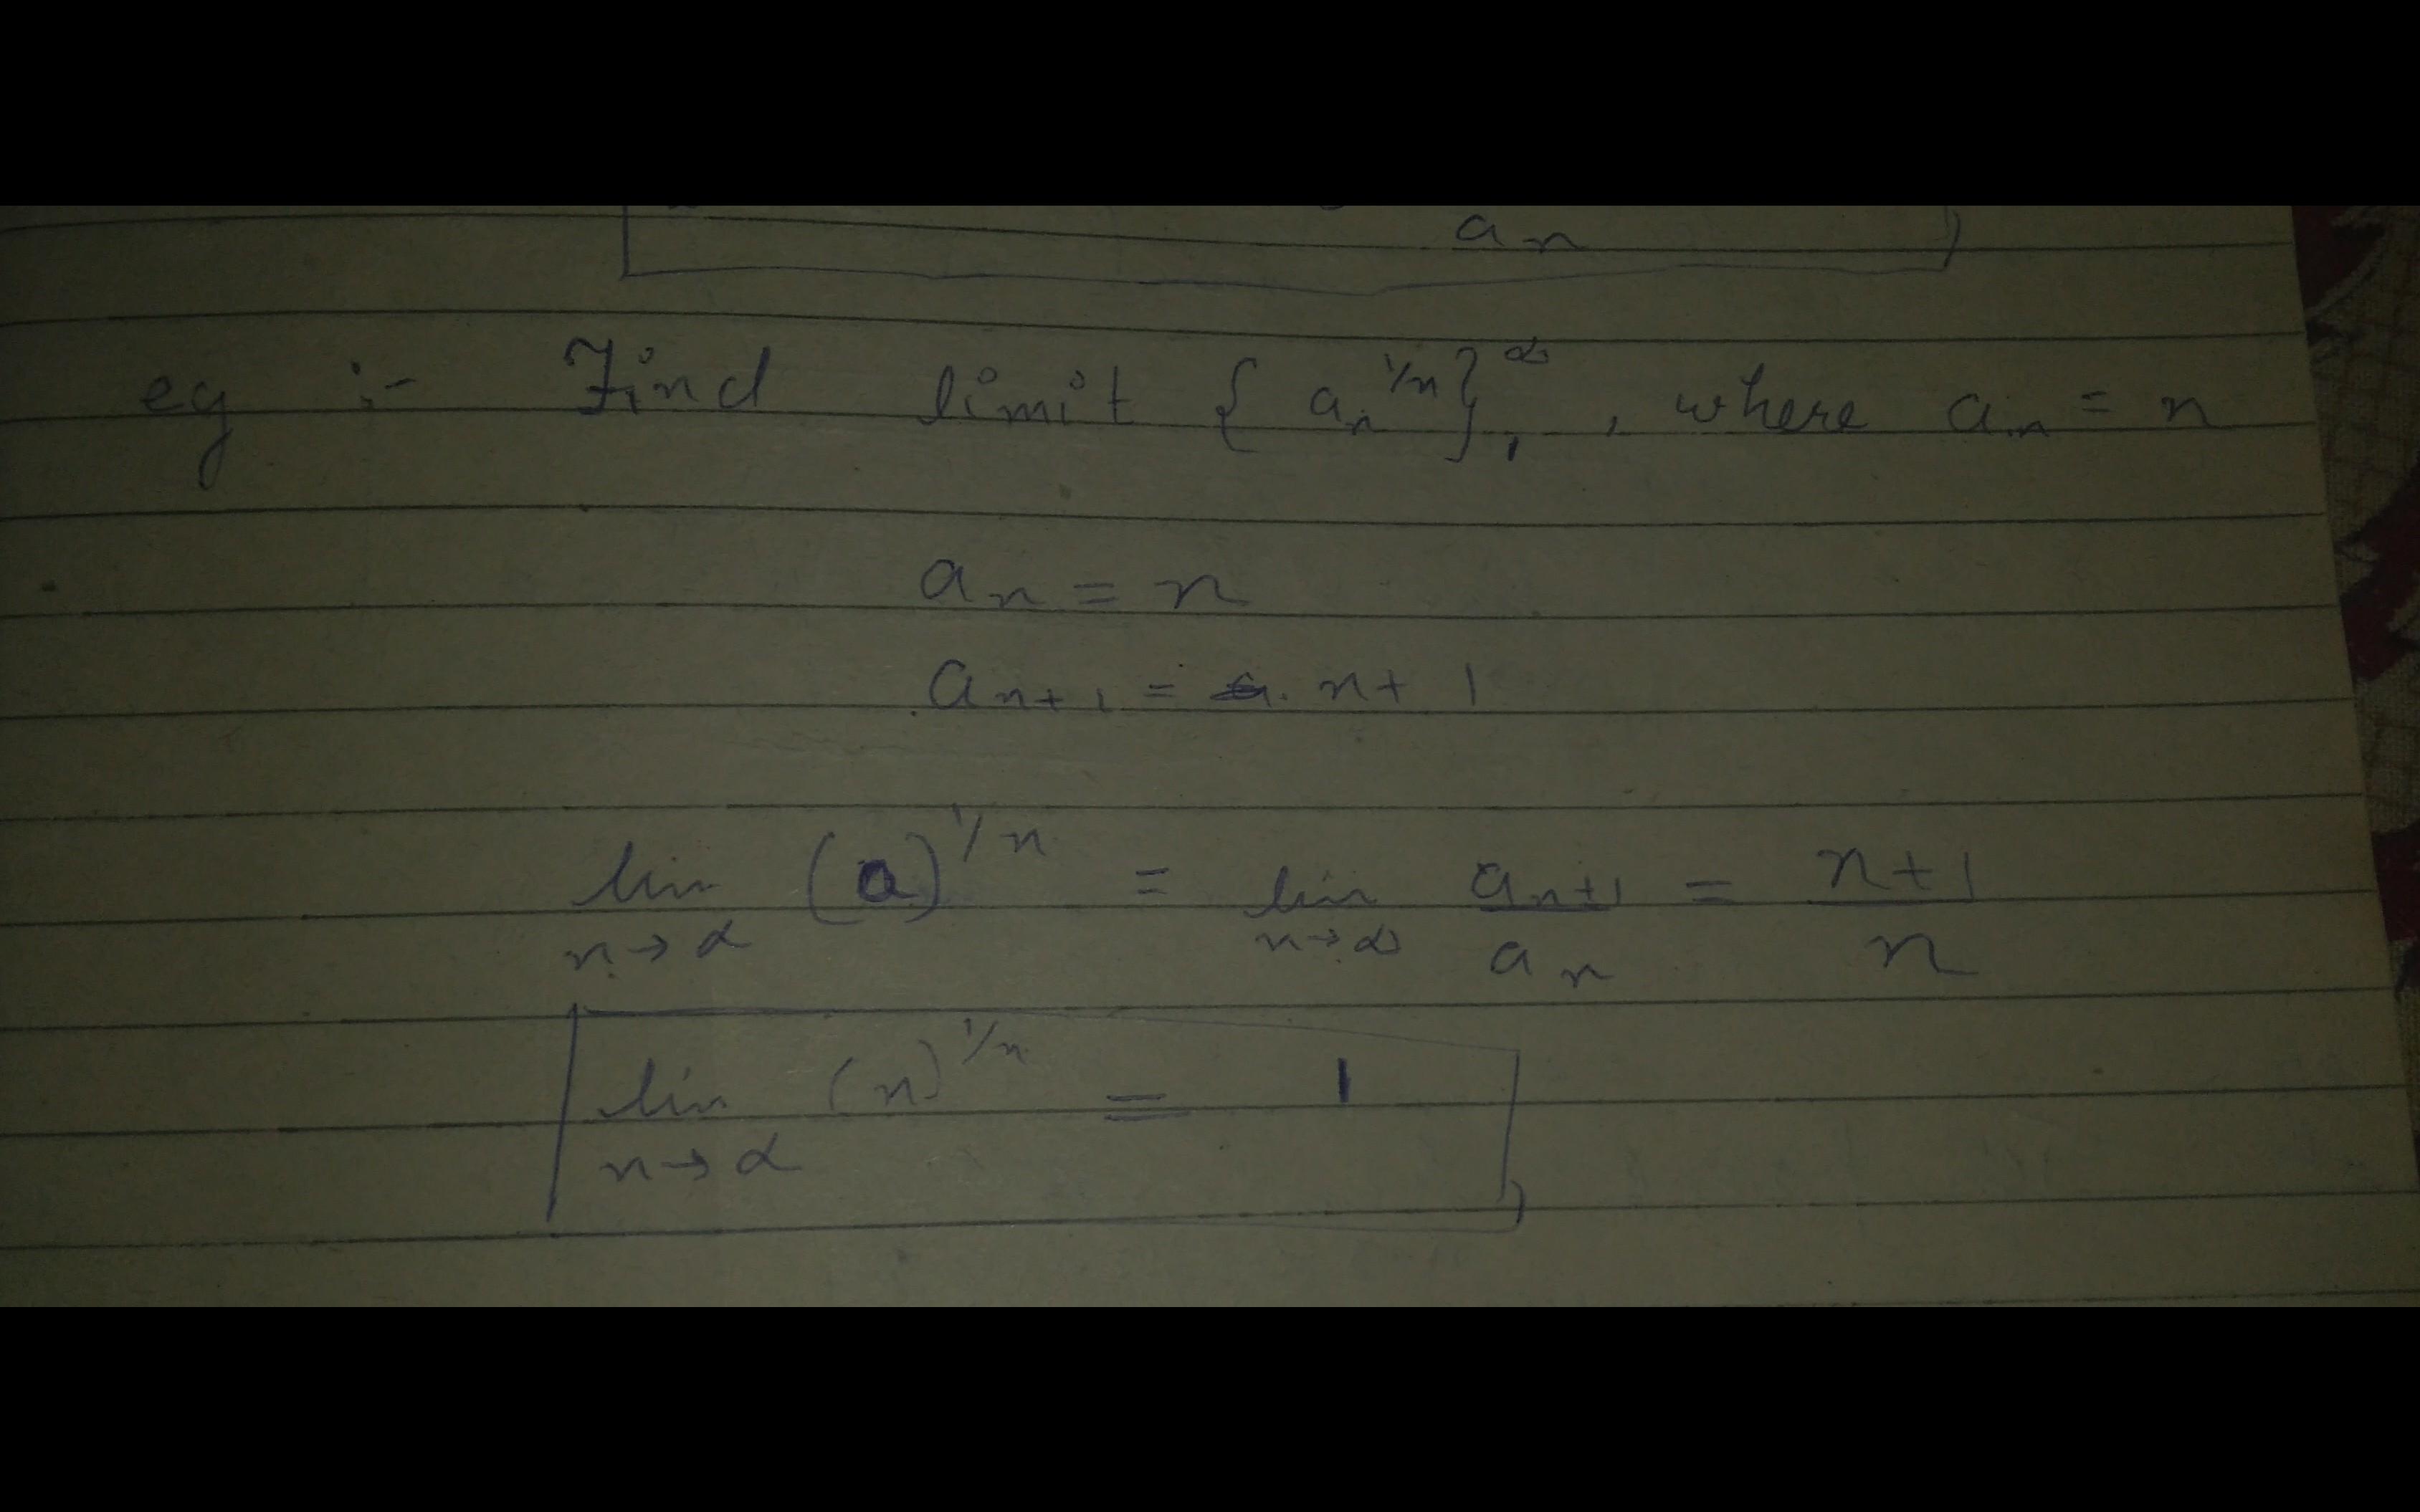 a_n
eg :- Find limit { a_n^1/n }_1^∞ , where a_n = n
a_n = n
a_n+1 = n + 1
lim n→∞ (a)^1/n = lim n→∞ a_n+1 / a_n = n+1 / n
lim n→∞ (n)^1/n = 1